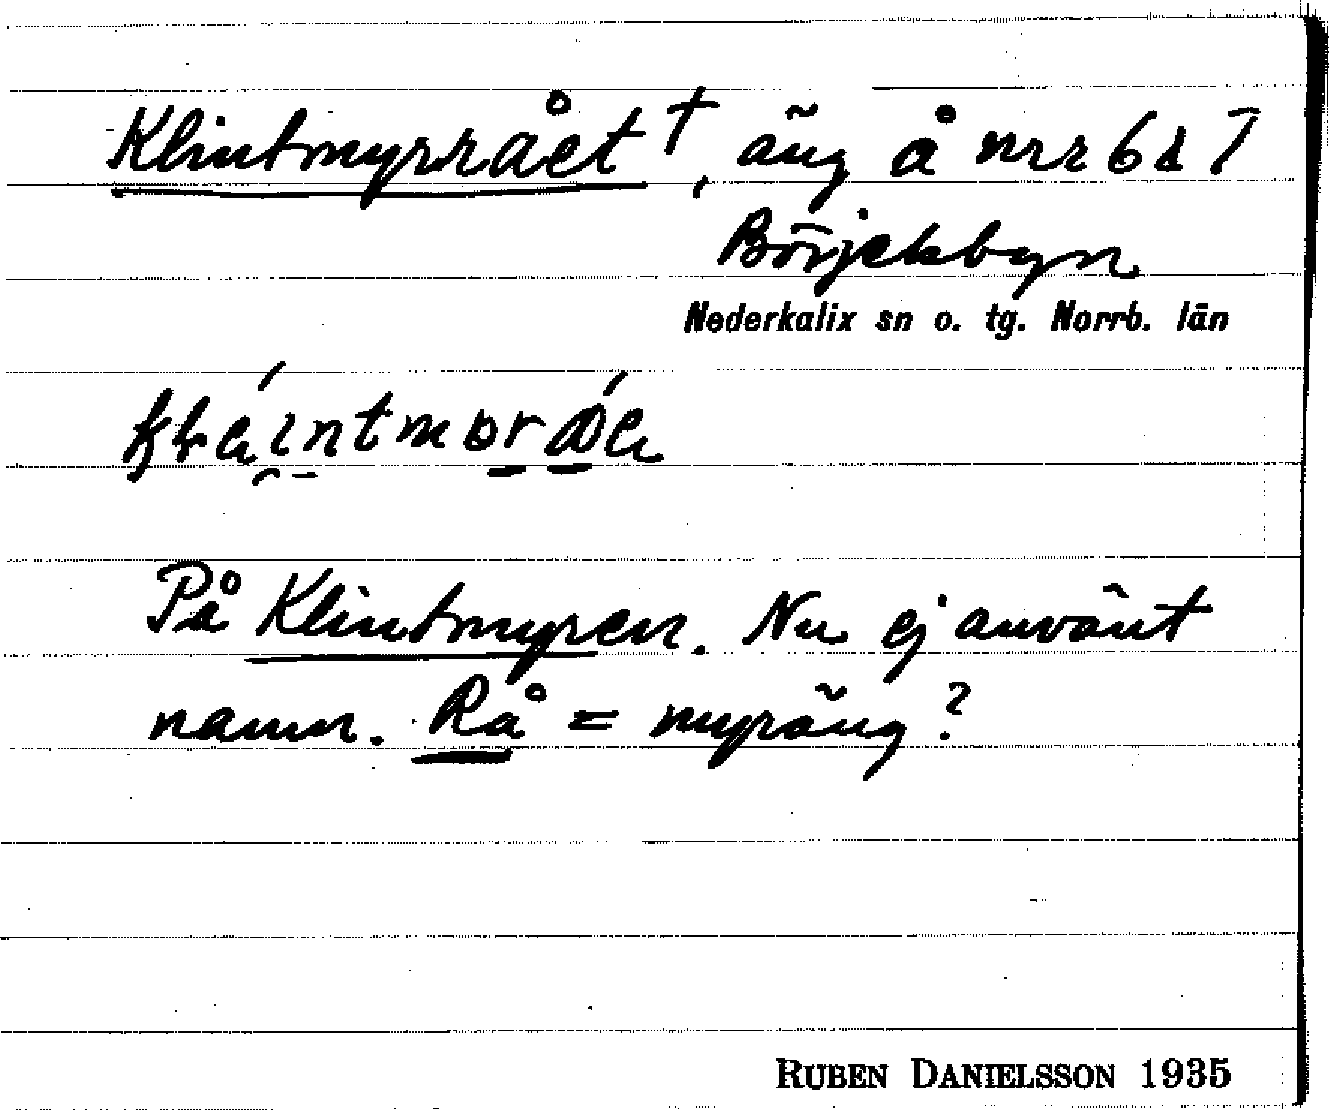 Klintmyrrået †, äng å nrr 6 & 7
Börjelsbyn
Nederkalix sn o. tg. Norrb. län
På Klintmyren. Nu ej använt
namn. Rå = myräng?
RUBEN DANIELSSON 1935